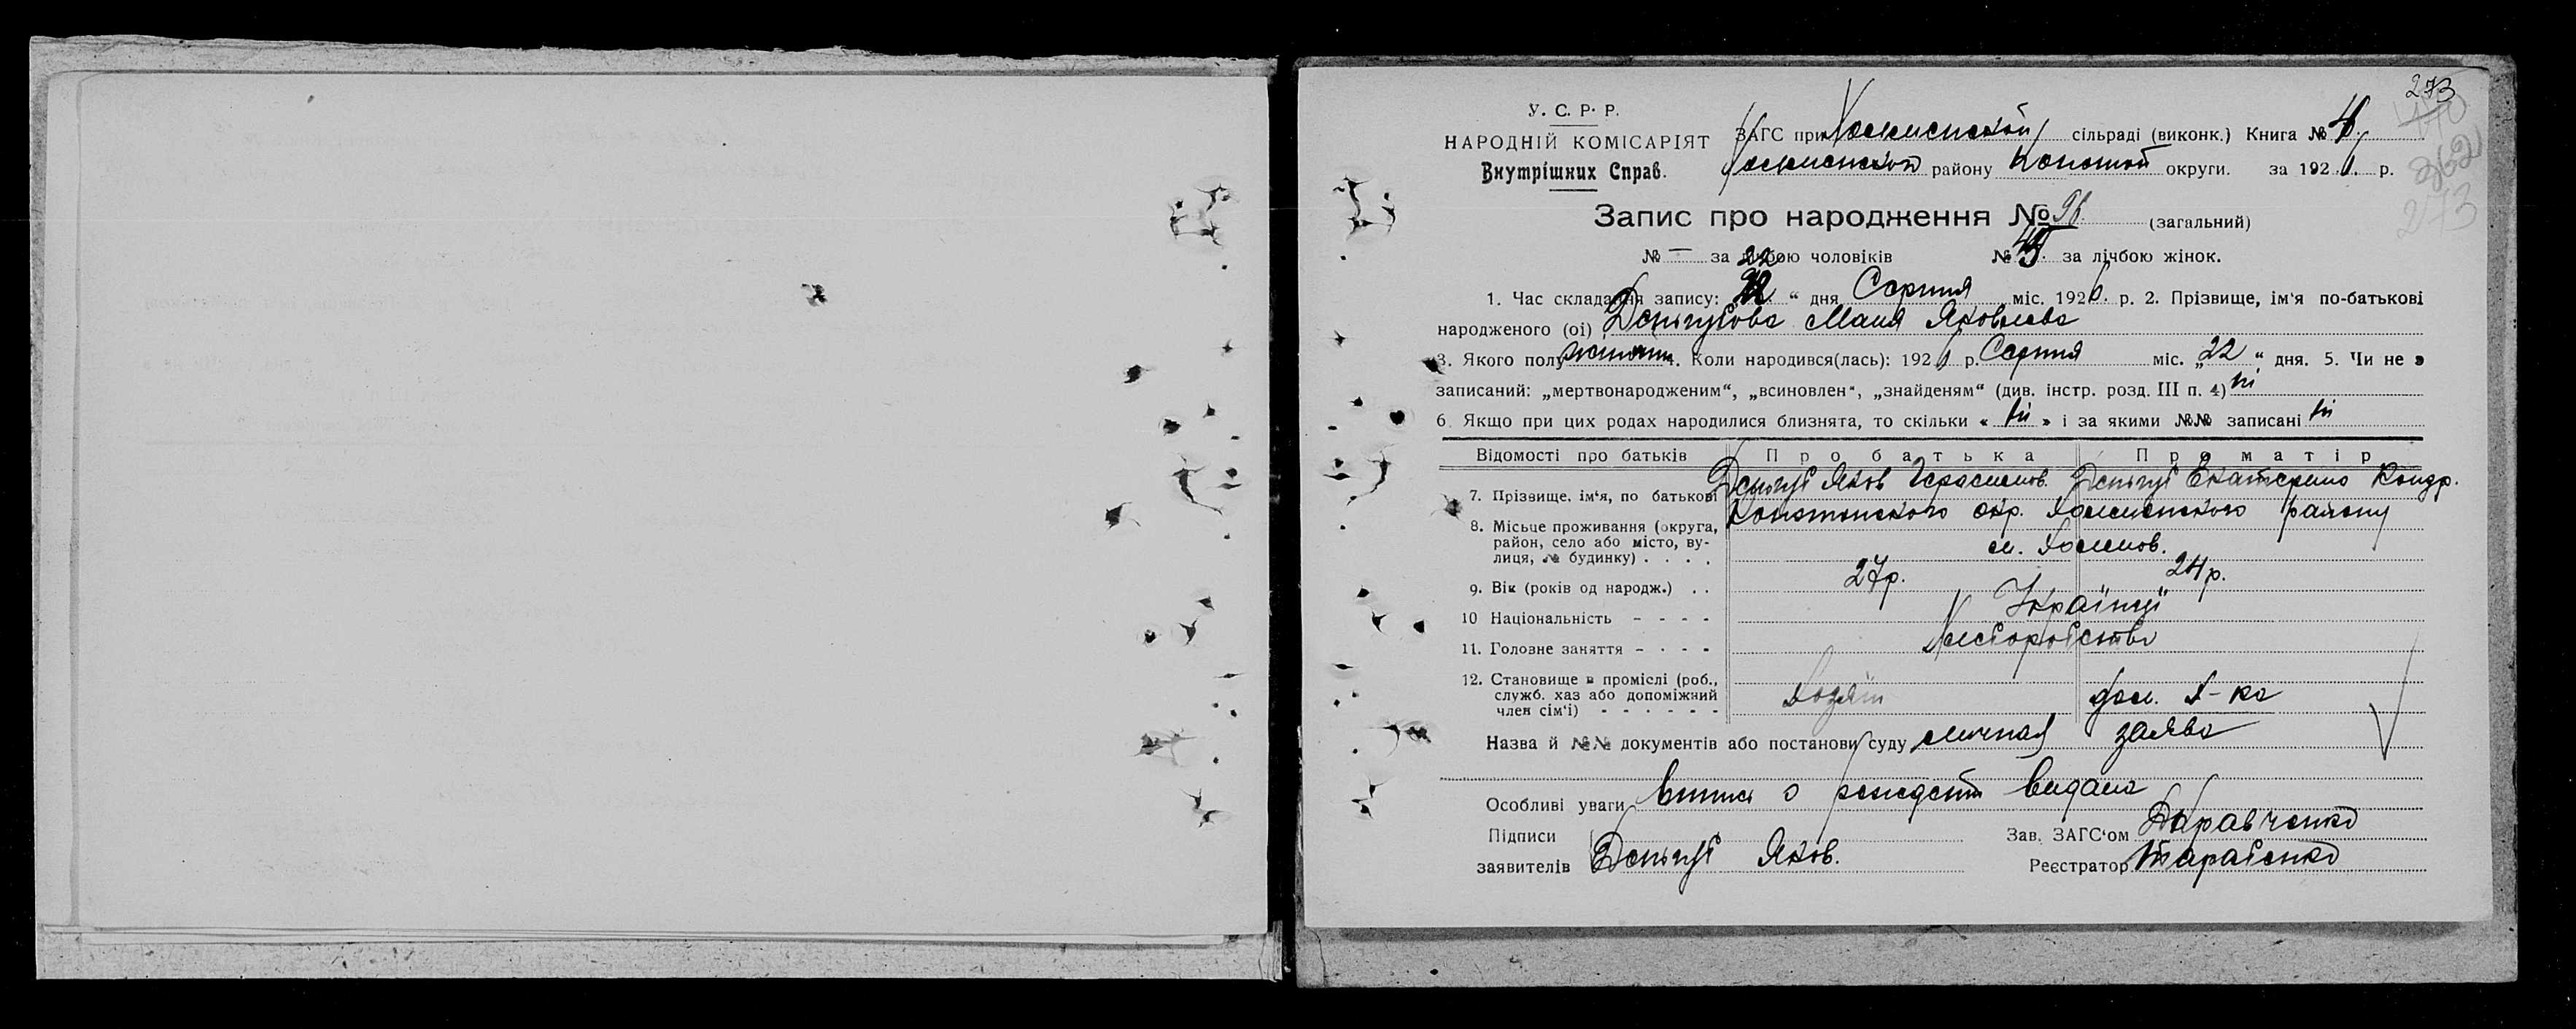 273
У. С. Р. Р.
НАРОДНІЙ КОМІСАРІЯТ
Внутрішних Справ.
ЗАГС при сільраді (виконк.) Книга №
району Коното округи. за 192 р.
362
273
Запис про народження № 96 (загальний)
№ — за лічбою чоловіків № за лічбою жінок.
1. Час складання запису: 22 “ дня Серпня міс. 1926. р. 2. Прізвище, ім‘я по-батькові
народженого (ої) Маня Яковлева
3. Якого полу 4. Коли народився(лась): 192 р. Серпня міс. „22“ дня. 5. Чи не з
записаний: „мертвонародженим“, „всиновлен“, „знайденям“ (див. інстр. розд. III п. 4) ні
6. Якщо при цих родах народилися близнята, то скільки « ні » і за якими №№ записані ні
Відомості про батьків Про батька Про матір
7. Прізвище, ім‘я, по батькові Яков Герасимов. Екатерина Кондр.
8. Місьце проживання (округа, район, село або місто, вулиця, № будинку) . . . . Конотопского окр. району
м.
9. Вік (років од народж.) . . 27р. 24р.
10 Національність - - - - Українці
11. Головне заняття - - - - Хлеборобство
12. Становище в промислі (роб., служб. хаз або допоміжний член сім‘ї) - - - - - - Хозяїн дом. х-ка
Назва й №№ документів або постанови суду личная заява
Особливі уваги о рождении видана
Підписи
заявителів Яков.
Зав. ЗАГС‘ом
Реєстратор Тарасенко